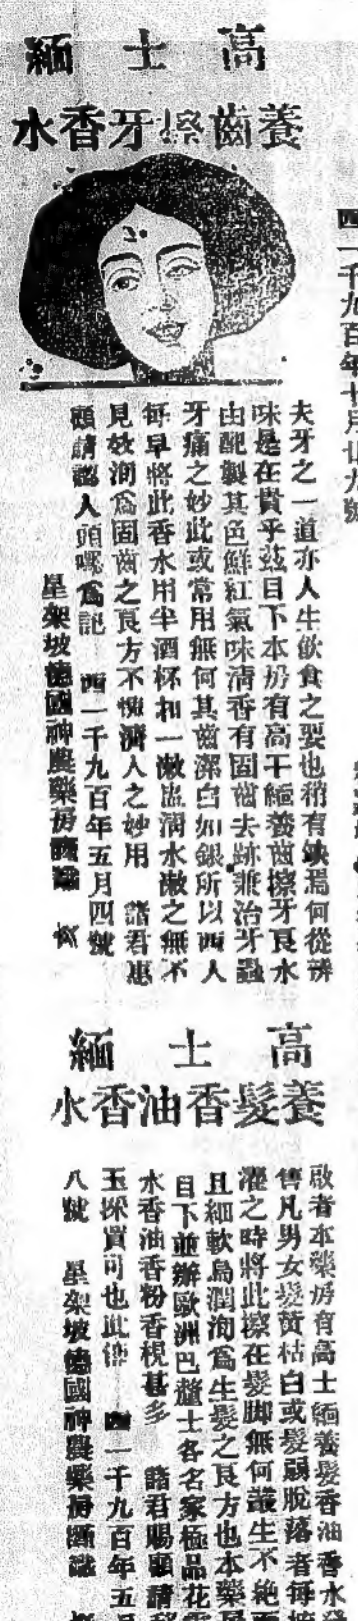 高士緬
養齒擦牙香水
夫牙之一道亦人生飲食之要也稍有缺焉何從辨
味是在貴乎茲目下本房有高士緬養齒擦牙良水
由配製其色鮮紅氣味清香有固齒去跡兼治牙蟲
牙痛之妙此或常用無何其齒潔白如銀所以西人
每早將此香水用半酒杯和一漱盅清水漱之無不
見效洵為固齒之良方不愧濟人之妙用 諸君惠
顧請認人頭嘜為記 西一千九百年五月四號
星架坡德國神農藥房 啟
高士緬
養髮香油香水
啟者本藥房有高士緬養髮香油香水
售凡男女髮黃枯白或髮弱脫落者每
濯之時將此擦在髮脚無何叢生不絕
且細軟烏潤洵為生髮之良方也本藥房
目下並辦歐洲巴黎士各名家極品花
水香油香粉香梘甚多 諸君賜顧請
玉採買可也此佈 西一千九百年五月
八號 星架坡德國神農藥房
西一千九百年十月廿九號